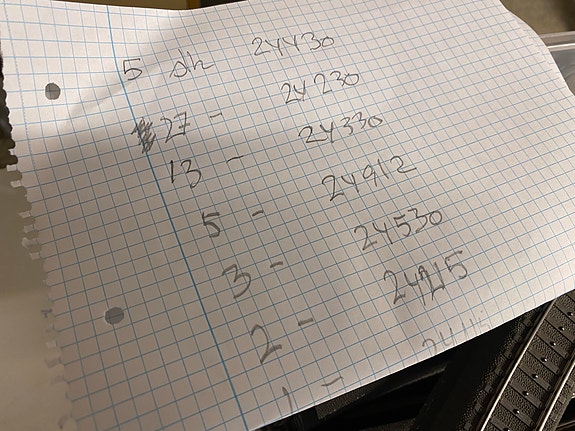 5 stk 24430
27 - 24230
13 - 24330
5 - 24912
3 - 24530
2 -
1 -